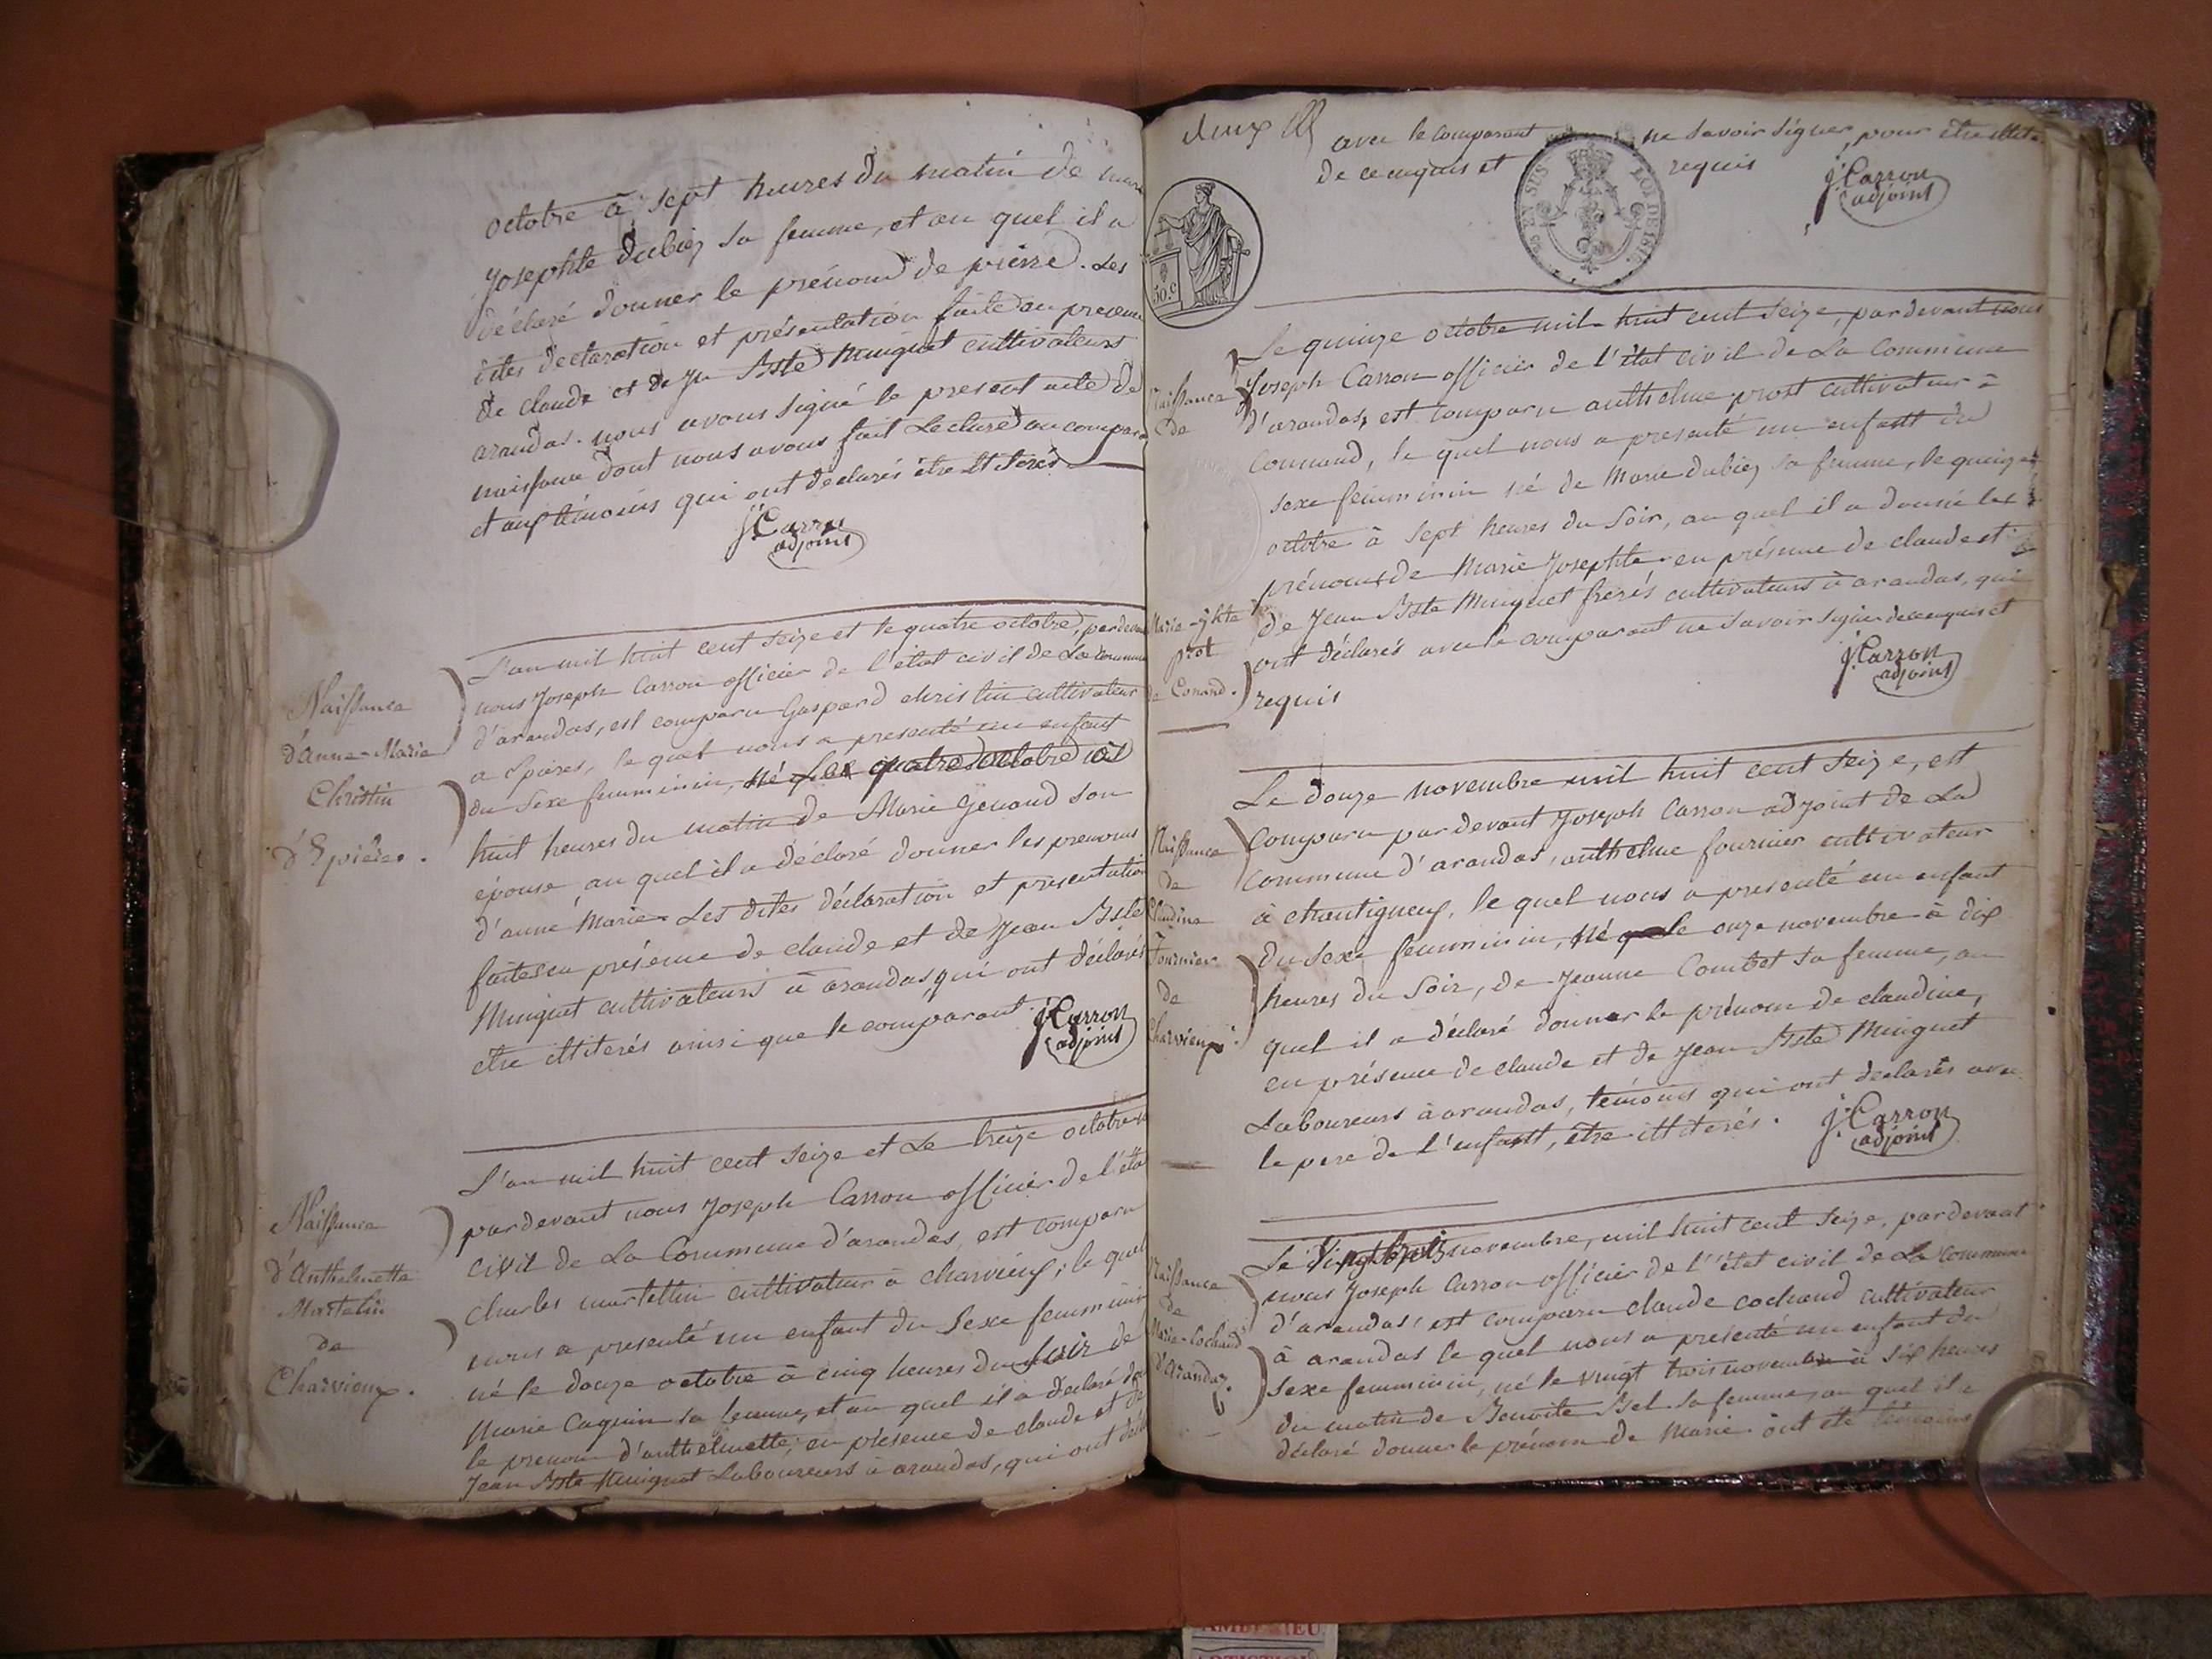 octobre à sept heures du matin de
Josephte dubiez sa femme, et au quel il a
déclaré donner le prénom de pierre. Les
dites declaration et présentation faite en presence
de claude et de Jn Bste Minguet cultivateurs
arandas. nous avons signé le present acte de
naissance dont nous avons fait Lecture au compara
et aux témoins qui ont declarés être illiterés
J. Carron
adjoint
Naissance
d'Anne-Marie
Christin
d'Epierre.
L'an mil huit cent seize et le quatre octobre, pardevant
nous Joseph Carron officier de l'état civil de La Commune
d'arandas, est comparu Gaspard christin cultivateur
a Epieres, le quel nous a presenté un enfant
du sexe femminin, né le quatre octobre à
huit heures du matin de Marie Genoud son
épouse au quel il a déclaré donner les prenoms
d'anne Marie. Les dites déclaration et présentation
faites en présence de claude et de Jean Bste
Minguet cultivateurs à arandas, qui ont déclarés
etre illiterés ainsi que le comparant.
J. Carron
adjoint
Naissance
d'Anthelmette
Martelin
de
Charvieux.
L'an mil huit cent seize et Le treize octobre
pardevant nous Joseph Carron officier de l'éta
civil de La Commune d'arandas, est comparu
Charles martellin cultivateur à charvieux; le quel
nous a presenté un enfant du sexe femminin
né le douze octobre à cinq heures du soir de
Marie Caguin sa femme, et au quel il a déclaré
le prenom d'anthelmette; en présence de claude et de
Jean Bste Minguet Laboureurs à arandas, qui ont
deux
avec le comparant ne savoir signer, pour être illite
de ce enquis et requis
J. Carron
adjoint
EN SUS
LOI DE 1816
50.c
Naissance
de
Marie-jhte
prot
de Conand.
Le quinze octobre mil huit cent seize, pardevant nous
Joseph Carron officier de l'état civil de La Commune
d'arandas, est comparu anthelme prost cultivateur à
Connand, le quel nous a presenté un enfant du
sexe femminin né de Marie dubiez sa femme, le quinze
octobre à sept heures du soir, au quel il a donné les
prénoms de Marie Josephte en présence de claude et
de Jean Bste Minguet freres cultivateurs à arandas, qui
ont déclarés avec le comparant ne savoir signer de ce enquis et
requis
J. Carron
adjoint
Naissance
de
Claudine
Fournier
de
Charvieux.
Le douze novembre mil huit cent seize, est
Comparu pardevant Joseph Carron adjoint de La
Commune d'arandas, anthelme fournier cultivateur
à chantigneux, le quel nous a presenté un enfant
du sexe femminin, né le onze novembre à dix
heures du soir, de Jeanne Combet sa femme, au
quel il a déclaré donner le prénom de claudine,
en présence de claude et de Jean Bste Minguet
Laboureurs à arandas, témoins qui ont declarés avec
le pere de l'enfant, être illiterés.
J. Carron
adjoint
Naissance
de
Marie-Cochand
d'Arandaz.
Le Vingt trois novembre, mil huit cent seize, pardevant
nous Joseph Carron officier de l'état civil de La Commune
d'arandas, est comparu claude cochand cultivateur
à arandas le quel nous a presenté un enfant du
sexe femminin, né le vingt trois novembre à six heures
du matin de Benoite Bel sa femme, au quel il a
déclaré donner le prénom de Marie. ont été témoins